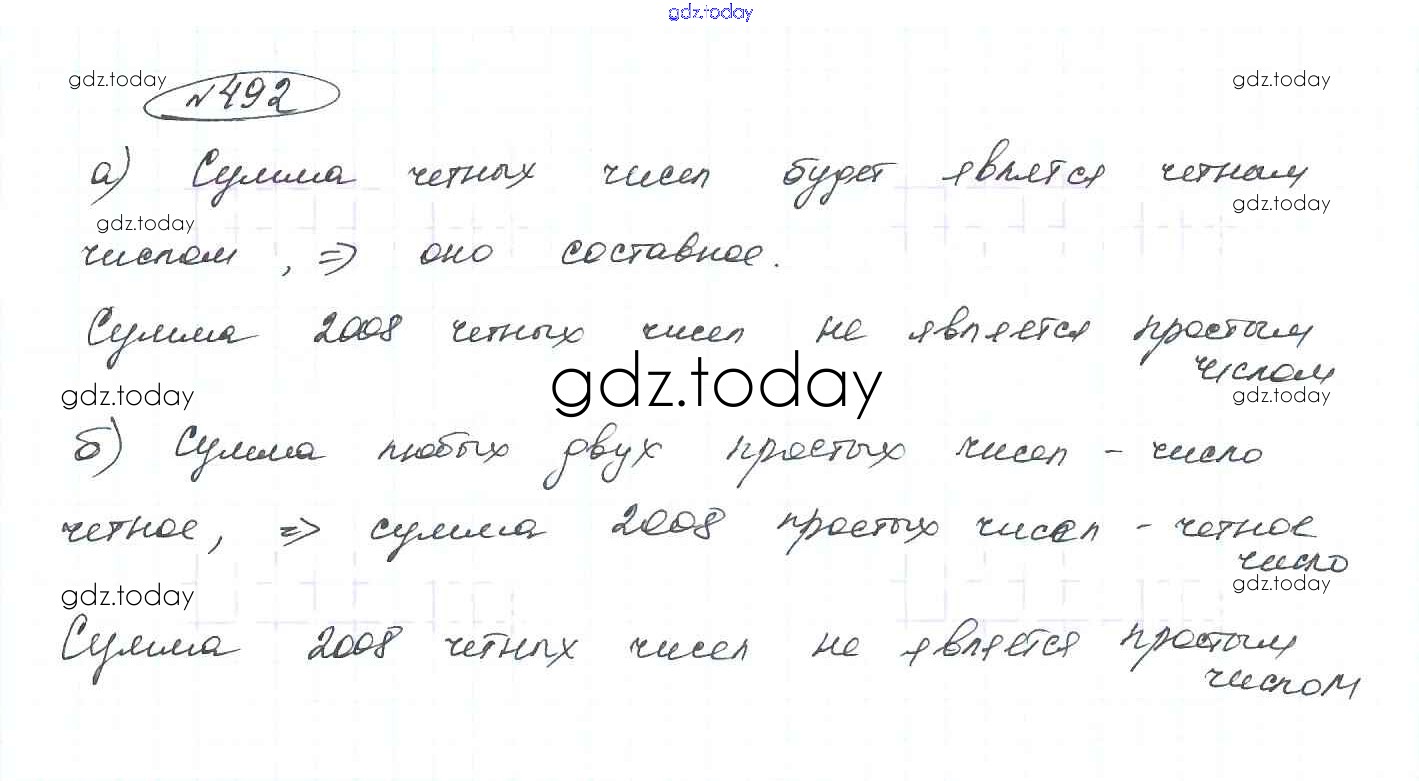 gdz.today
gdz.today № 492 gdz.today
а) Сумма четных чисел будет являтся четным
gdz.today gdz.today
числом, => оно составное.
Сумма 2008 четных чисел не является простым
числом
gdz.today gdz.today gdz.today
б) Сумма любых двух простых чисел - число
четное, => сумма 2008 простых чисел - четное
число
gdz.today gdz.today
Сумма 2008 четных чисел не является простым
числом